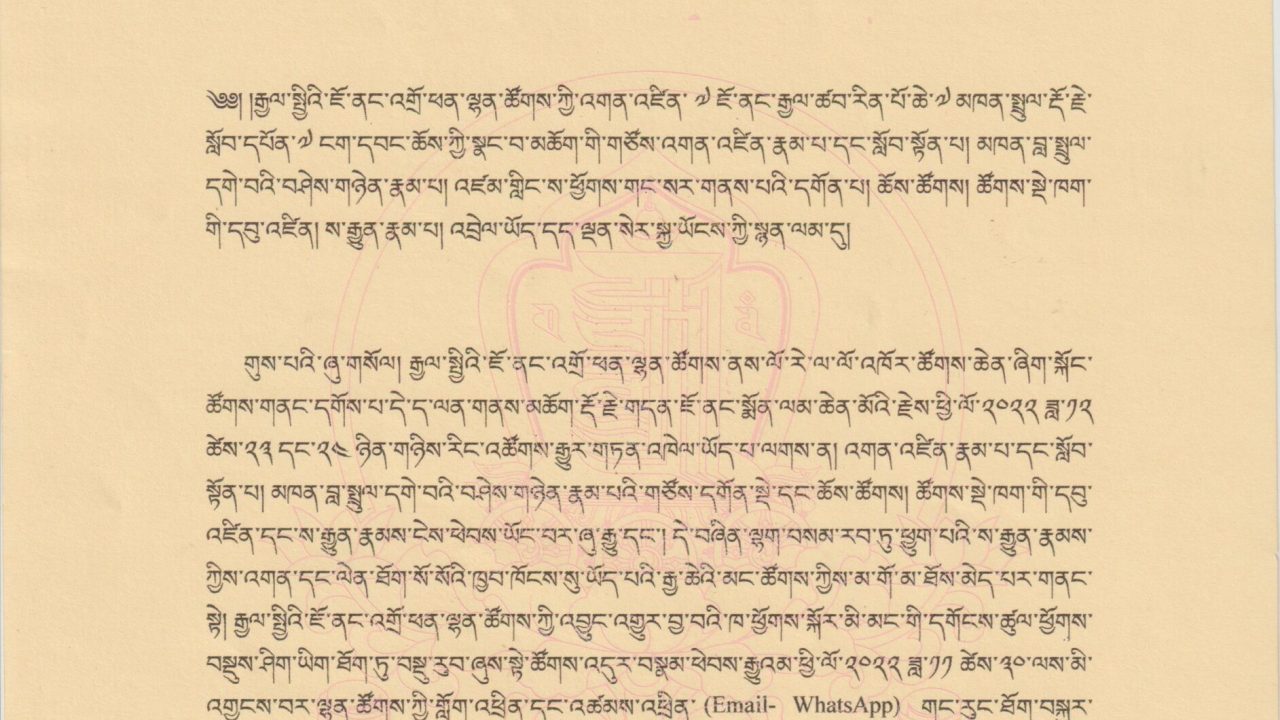 ༄༅། །རྒྱལ་སྤྱིའི་ཇོ་ནང་འགྲོ་ཕན་ལྷན་ཚོགས་ཀྱི་འགན་འཛིན་ ༧ ཇོ་ནང་རྒྱལ་ཚབ་རིན་པོ་ཆེ་༧ མཁན་སྤྲུལ་རྡོ་རྗེ་
སློབ་དཔོན་༧ ངག་དབང་ཆོས་ཀྱི་སྣང་བ་མཆོག་གི་གཙོས་འགན་འཛིན་རྣམ་པ་དང་སློབ་སྟོན་པ། མཁན་བླ་སྤྲུལ་
དགེ་བའི་བཤེས་གཉེན་རྣམ་པ། འཛམ་གླིང་ས་ཕྱོགས་གང་སར་གནས་པའི་དགོན་པ། ཆོས་ཚོགས། ཚོགས་སྡེ་ཁག་
གི་དབུ་འཛིན། ས་རྒྱུན་རྣམ་པ། འབྲེལ་ཡོད་དད་ལྡན་སེར་སྐྱ་ཡོངས་ཀྱི་སྙན་ལམ་དུ།
གུས་པའི་ཞུ་གསོལ། རྒྱལ་སྤྱིའི་ཇོ་ནང་འགྲོ་ཕན་ལྷན་ཚོགས་ནས་ལོ་རེ་ལ་ལོ་འཁོར་ཚོགས་ཆེན་ཞིག་སྐོང་
ཚོགས་གནང་དགོས་པ་དེ་ད་ལན་གནས་མཆོག་རྡོ་རྗེ་གདན་ཇོ་ནང་སྨོན་ལམ་ཆེན་མོའི་རྗེས་ཕྱི་ལོ་༢༠༢༢ ཟླ་༡༢
ཚེས་༢༣ དང་༢༤ ཉིན་གཉིས་རིང་འཚོགས་རྒྱུར་གཏན་འཁེལ་ཡོད་པ་ལགས་ན། འགན་འཛིན་རྣམ་པ་དང་སློབ་
སྟོན་པ། མཁན་བླ་སྤྲུལ་དགེ་བའི་བཤེས་གཉེན་རྣམ་པའི་གཙོས་དགོན་སྡེ་དང་ཆོས་ཚོགས། ཚོགས་སྡེ་ཁག་གི་དབུ་
འཛིན་དང་ས་རྒྱུན་རྣམས་ངེས་ཕེབས་ཡོང་བར་ཞུ་རྒྱུ་དང་། དེ་བཞིན་ལྷག་བསམ་རབ་ཏུ་ཕྱུག་པའི་ས་རྒྱུན་རྣམས་
ཀྱིས་འགན་དང་ལེན་ཐོག་སོ་སོའི་ཁྱབ་ཁོངས་སུ་ཡོད་པའི་རྒྱ་ཆེའི་མང་ཚོགས་ཀྱིས་མ་གོ་མ་ཐོས་མེད་པར་གནང་
སྟེ། རྒྱལ་སྤྱིའི་ཇོ་ནང་འགྲོ་ཕན་ལྷན་ཚོགས་ཀྱི་འབྱུང་འགྱུར་བྱ་བའི་ཁ་ཕྱོགས་སྐོར་མི་མང་གི་དགོངས་ཚུལ་ཕྱོགས་
བསྡུས་ཤིག་ཡིག་ཐོག་ཏུ་བསྡུ་རུབ་ཞུས་ཏེ་ཚོགས་འདུར་བསྣམ་ཕེབས་རྒྱུའམ་ཕྱི་ལོ་༢༠༢༢ ཟླ་༡༡ ཚེས་༣༠་ལས་མི་
འགྱངས་བར་ལྷན་ཚོགས་ཀྱི་གློག་འཕྲིན་དང་འཚམས་འཕྲིན་ (Email- WhatsApp) གང་རུང་ཐོག་བསྐར་